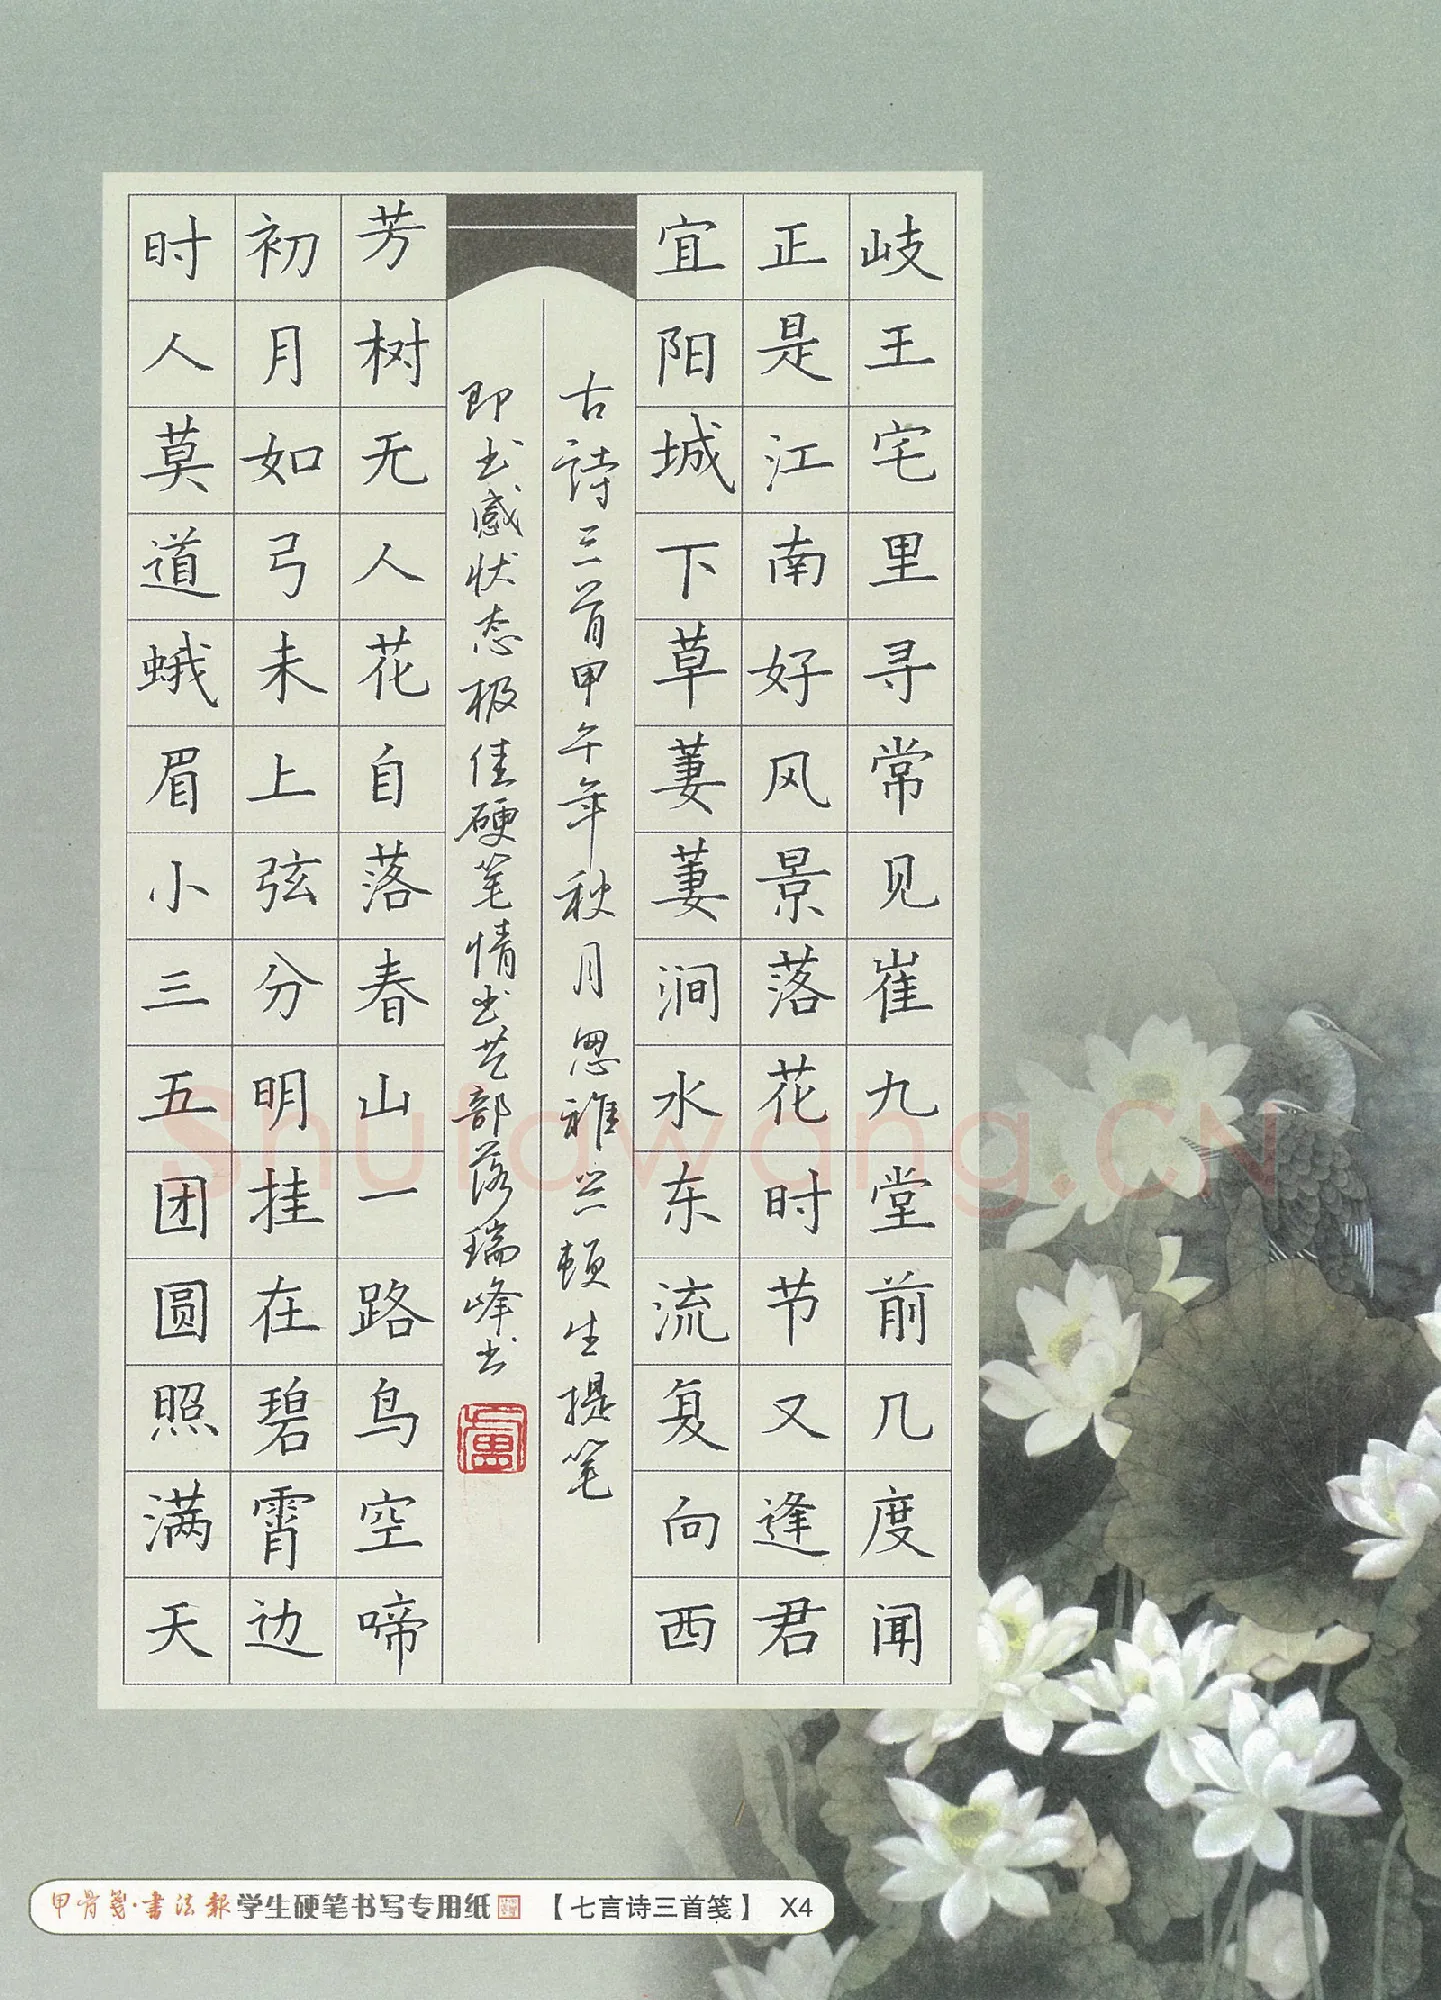 岐王宅里寻常见崔九堂前几度闻
正是江南好风景落花时节又逢君
宜阳城下草萋萋涧水东流复向西
古诗三首甲午年秋月雅兴顿生提笔
即书感状态极佳硬笔情书艺部落瑞峰书
芳树无人花自落春山一路鸟空啼
初月如弓未上弦分明挂在碧霄边
时人莫道蛾眉小三五团圆照满天
甲骨笺·書法報学生硬笔书写专用纸【七言诗三首笺】 X4
Shufawang.CN